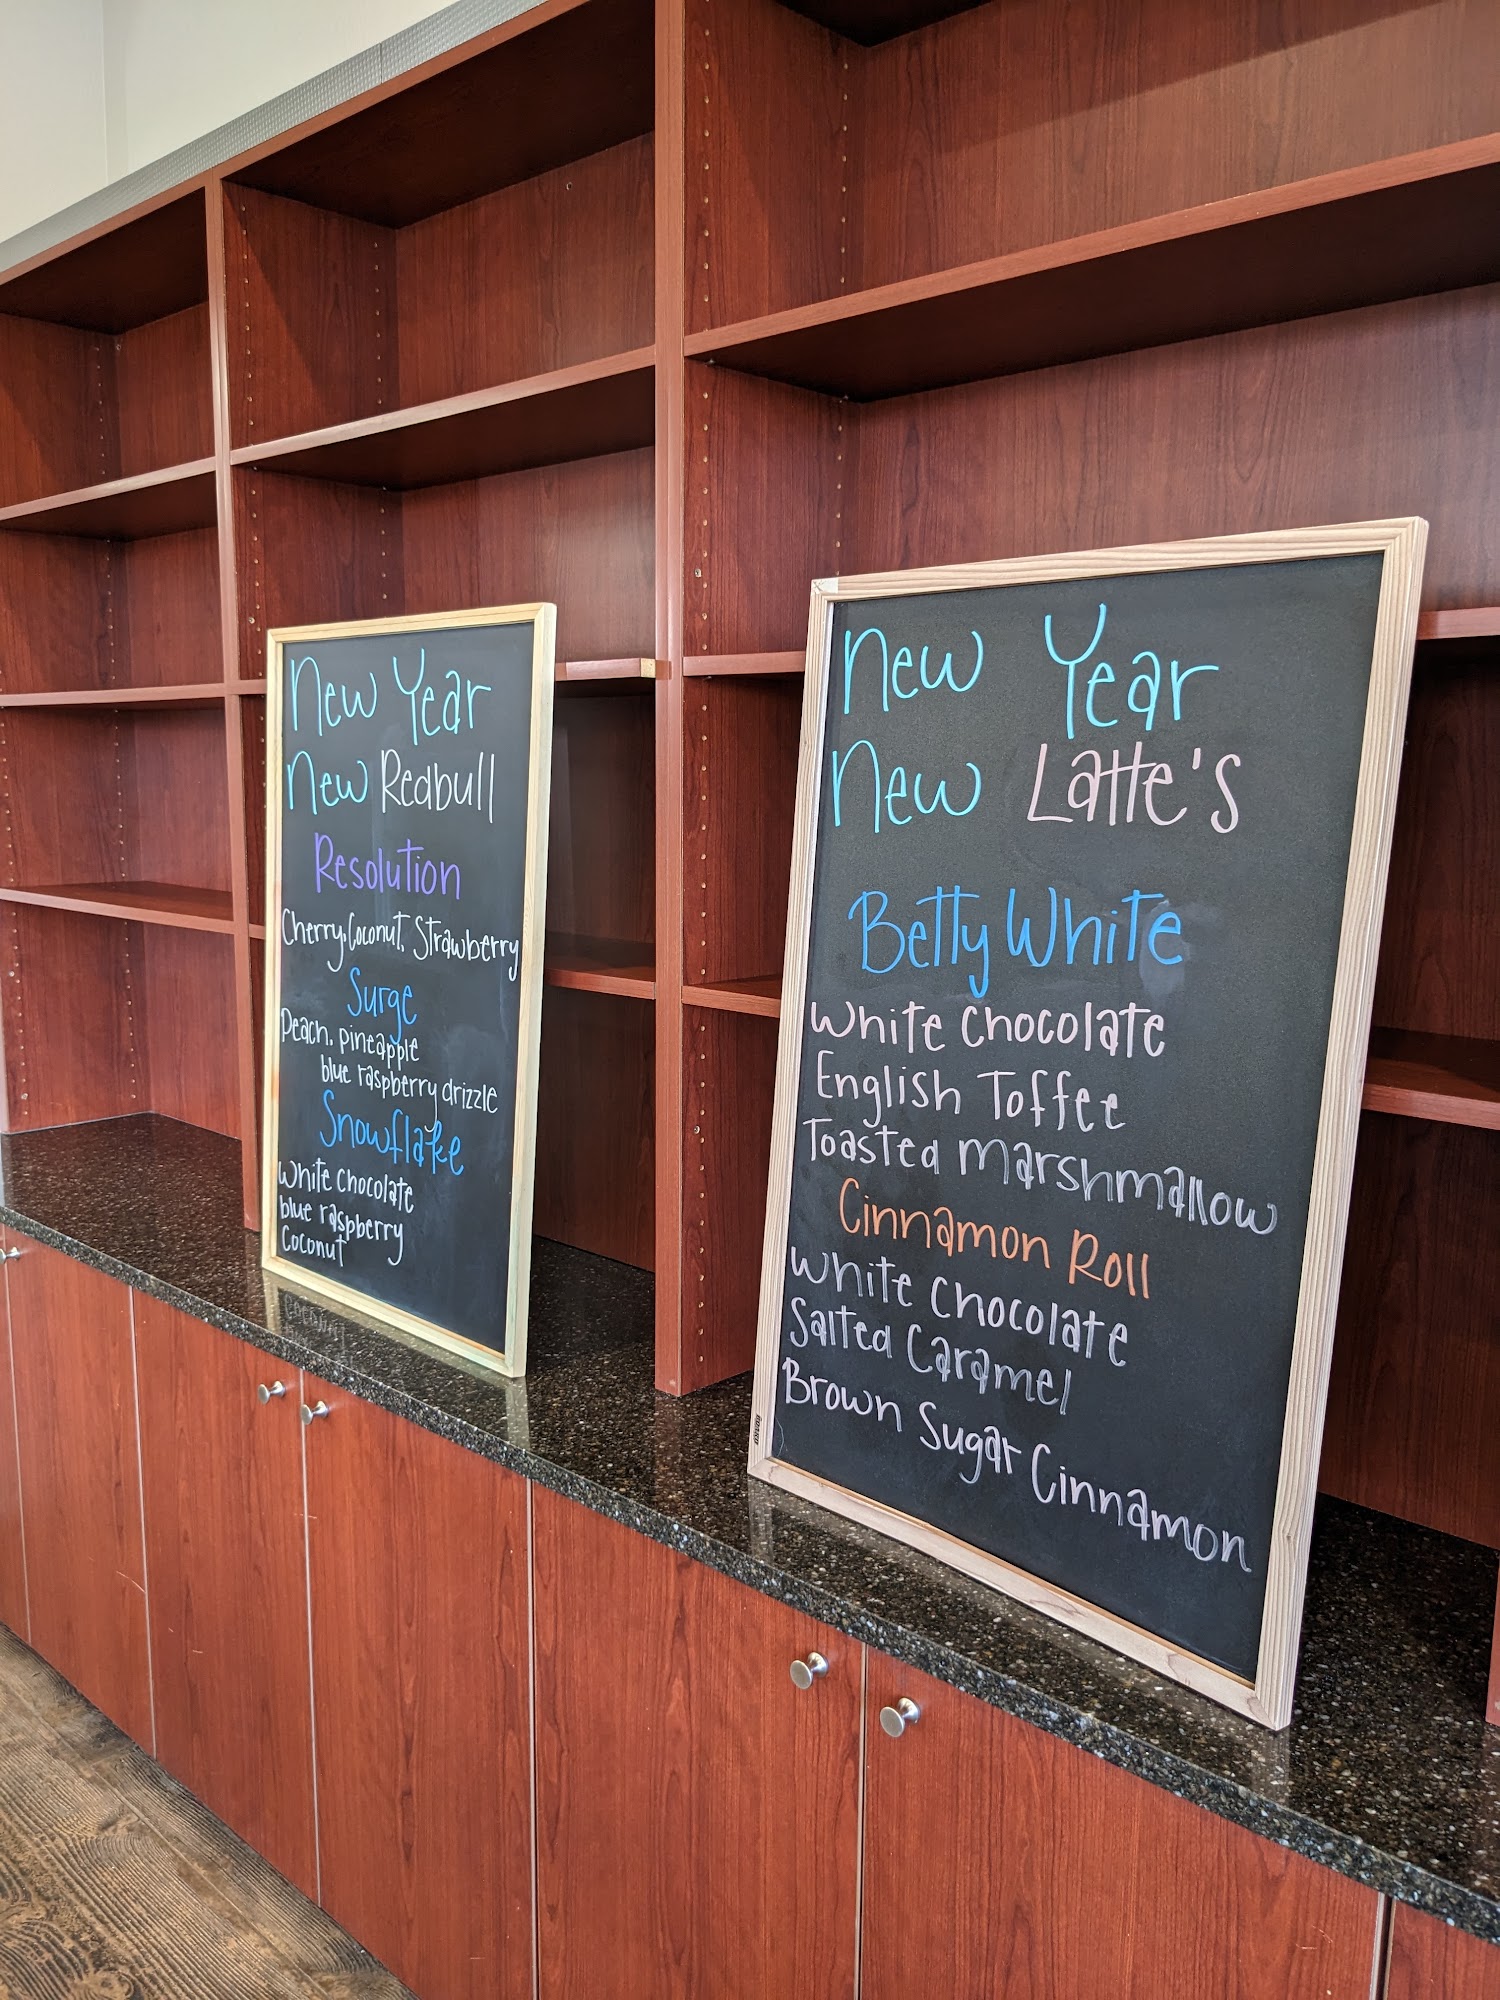 New Year
New Redbull
Resolution
Cherry, Coconut, Strawberry
Surge
Peach, pineapple
blue raspberry drizzle
Snowflake
White chocolate
blue raspberry
Coconut
New Year
New Latte's
Betty White
White Chocolate
English Toffee
Toasted Marshmallow
Cinnamon Roll
White Chocolate
Salted Caramel
Brown Sugar Cinnamon